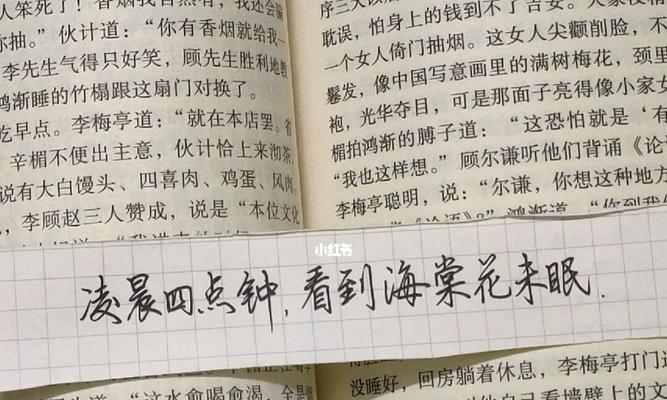 人笨死了！香烟我自然有，我还会骗
你抽。”伙计道：“你有香烟就给我一
李先生气得只好笑，顾先生胜利地教
鸿渐睡的竹榻跟这扇门对换了。
吃早点。李梅亭道：“就在本店罢。省
辛楣不便出主意，伙计恰上来沏茶、
说有大白馒头、四喜肉、鸡蛋、风肉。
李顾赵三人赞成，说是“本位文化
序三天以
耽误，怕身上的钱到不了吉安。大家没
一个女人倚门抽烟。这女人尖颧削脸，不
鬈发，像中国写意画里的满树梅花，颈里
袍，光华夺目，可是那面子亮得像小家女
楣拍鸿渐的膊子道：“这恐怕就是‘有
“我也这样想。”顾尔谦听他们背诵《论
李梅亭聪明，说：“尔谦，你想这种地方
《论语》？”鸿渐道，“你到我们
小红书
凌晨四点钟，看到海棠花未眠.
“这水愈喝愈渴，全是
李梅亭打门
没睡好，回房躺着休息，
自己看墙壁上的文